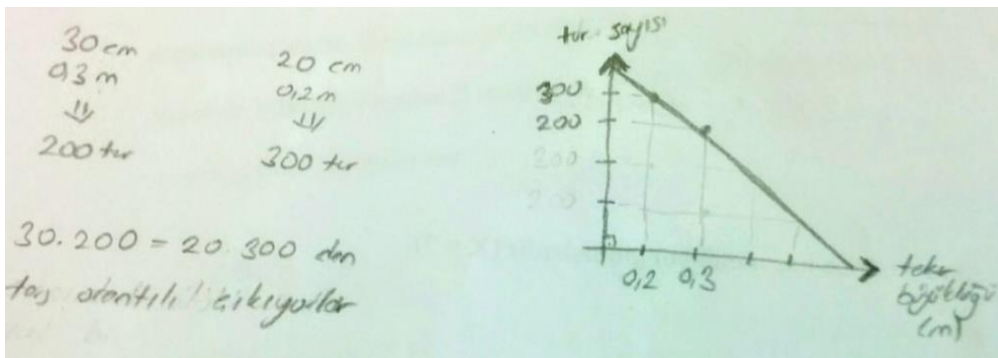 30 cm
0,3 m
⇓
200 tur
20 cm
0,2 m
⇓
300 tur
30.200 = 20.300 den
ters orantılı çıkıyorlar
tur sayısı
300
200
200
200
0,2 0,3
teker
büyüklüğü
(m)